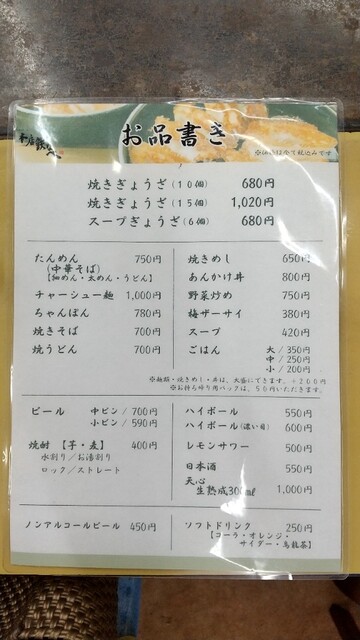 お品書き
※価格は全て税込みです
焼きぎょうざ(10個) 680円
焼きぎょうざ(15個) 1,020円
スープぎょうざ(6個) 680円
たんめん 750円
(中華そば)
【細めん・太めん・うどん】
チャーシュー麺 1,000円
ちゃんぽん 780円
焼きそば 700円
焼うどん 700円
焼きめし 650円
あんかけ丼 800円
野菜炒め 750円
梅ザーサイ 380円
スープ 420円
ごはん 大/350円
中/250円
小/200円
※麺類・焼きめし・丼は、大盛にできます。+200円
※お持ち帰り用パックは、50円いただきます。
ビール 中ビン/700円
小ビン/590円
焼酎【芋・麦】 400円
水割り/お湯割り
ロック/ストレート
ハイボール 550円
ハイボール(濃い目) 600円
レモンサワー 500円
日本酒 550円
天心
生熟成300ml 1,000円
ノンアルコールビール 450円
ソフトドリンク 250円
【コーラ・オレンジ・
サイダー・烏龍茶】